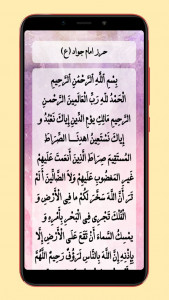 حرز امام جواد (ع)
بِسْمِ اللَّهِ الرَّحْمٰنِ الرَّحِيمِ
الْحَمْدُ لِلَّهِ رَبِّ الْعَالَمِينَ الرَّحْمٰنِ
الرَّحِيمِ مَالِكِ يَوْمِ الدِّينِ إِيَّاكَ نَعْبُدُ وَ
إِيَّاكَ نَسْتَعِينُ اهْدِنَا الصِّرَاطَ
الْمُسْتَقِيمَ صِرَاطَ الَّذِينَ أَنْعَمْتَ عَلَيْهِمْ
غَيْرِ الْمَغْضُوبِ عَلَيْهِمْ وَلَا الضَّالِّينَ أَلَمْ
تَرَ أَنَّ اللَّهَ سَخَّرَ لَكُمْ مَا فِي الْأَرْضِ وَ
الْفُلْكَ تَجْرِي فِي الْبَحْرِ بِأَمْرِهِ وَ
يُمْسِكُ السَّمَاءَ أَنْ تَقَعَ عَلَى الْأَرْضِ إِلَّا
بِإِذْنِهِ إِنَّ اللَّهَ بِالنَّاسِ لَرَءُوفٌ رَحِيمٌ اللَّهُمَّ